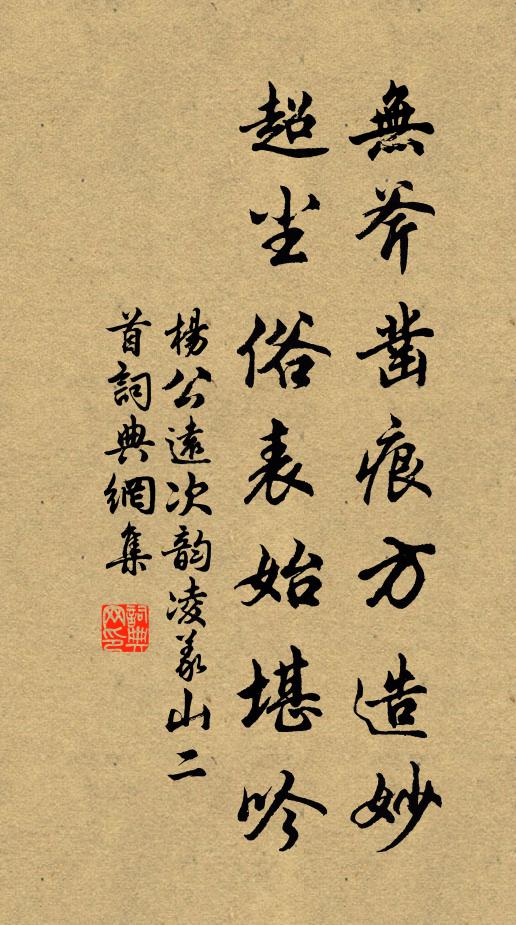 無斧鑿痕方造妙
超尘俗表始堪吟
楊公遠次韵凌義山二
首詞典網集
詞典网印